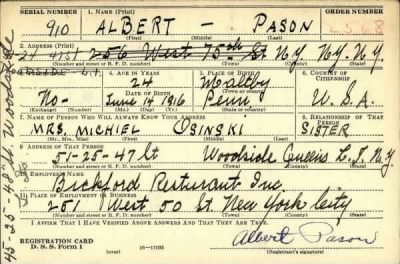 SERIAL NUMBER 1. NAME (Print) ORDER NUMBER
910 ALBERT — PASON
(First) (Middle) (Last)
2. ADDRESS (Print)
256 West 75th St. N.Y. N.Y. N.Y.
(Number and street or R. F. D. number) (Town) (County) (State)
3. TELEPHONE 4. AGE IN YEARS 5. PLACE OF BIRTH 6. COUNTRY OF CITIZENSHIP
24 Maltby
DATE OF BIRTH
No- June 14 1916 Penn. U.S.A.
(Exchange) (Number) (Mo.) (Day) (Yr.) (State or country)
7. NAME OF PERSON WHO WILL ALWAYS KNOW YOUR ADDRESS 8. RELATIONSHIP OF THAT PERSON
MRS. MICHIEL OSINSKI SISTER
(Mr., Mrs., Miss) (First) (Middle) (Last)
9. ADDRESS OF THAT PERSON
51-25-47 St Woodside Queens L.I. N.Y.
(Number and street or R. F. D. number) (Town) (County) (State)
10. EMPLOYER'S NAME
Bickford Resturant Inc.
11. PLACE OF EMPLOYMENT OR BUSINESS
251 West 50 St. New York City
(Number and street or R. F. D. number) (Town) (County) (State)
I AFFIRM THAT I HAVE VERIFIED ABOVE ANSWERS AND THAT THEY ARE TRUE.
REGISTRATION CARD
D. S. S. Form 1 16—17105 Albert Pason
(Registrant's signature)
45-25-48 St Woodside